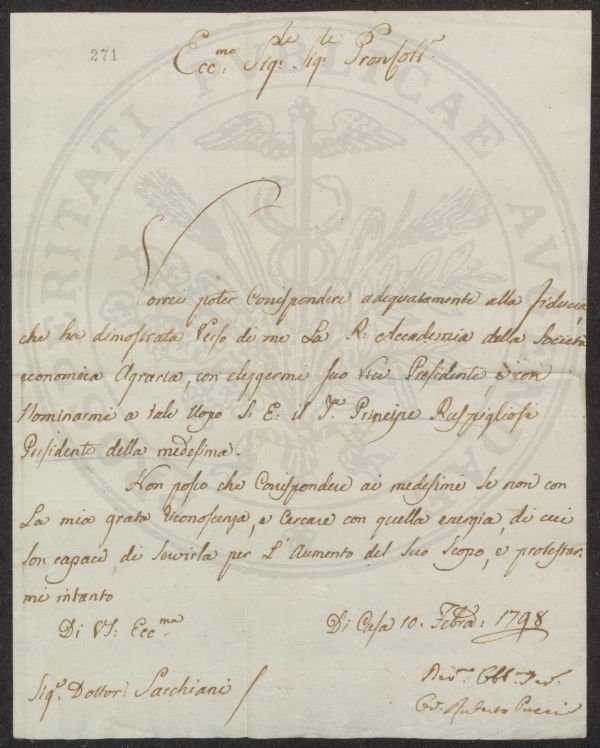 271
Ecc.mo Sig.re Sig.re Pron Coll.
Vorrei poter Corrispondere adequatamente alla fiducia,
che ha dimostrata Verso di me La R. Accademia della Società
economica Agraria, con eleggermi suo Vice Presidente, e con
Nominarmi a tale Uopo S. E. il S.r Principe Ruspigliosi
Presidente della medesima.
Non posso che Corrispondere ai medesimi se non con
La mia grata riconoscenza, e Cercare con quella energia, di cui
son capace, di Servirla per L'Aumento del Suo Scopo, e protestar-
mi intanto
Di VS. Ecc.ma
Di Casa 10. Febbr. 1798
Sig.r Dottor. Sacchiani
Dev.mo Obb.mo Ser.
Cav. Ruberto Pucci
PROSPERITATI PUBLICAE AUGENDAE